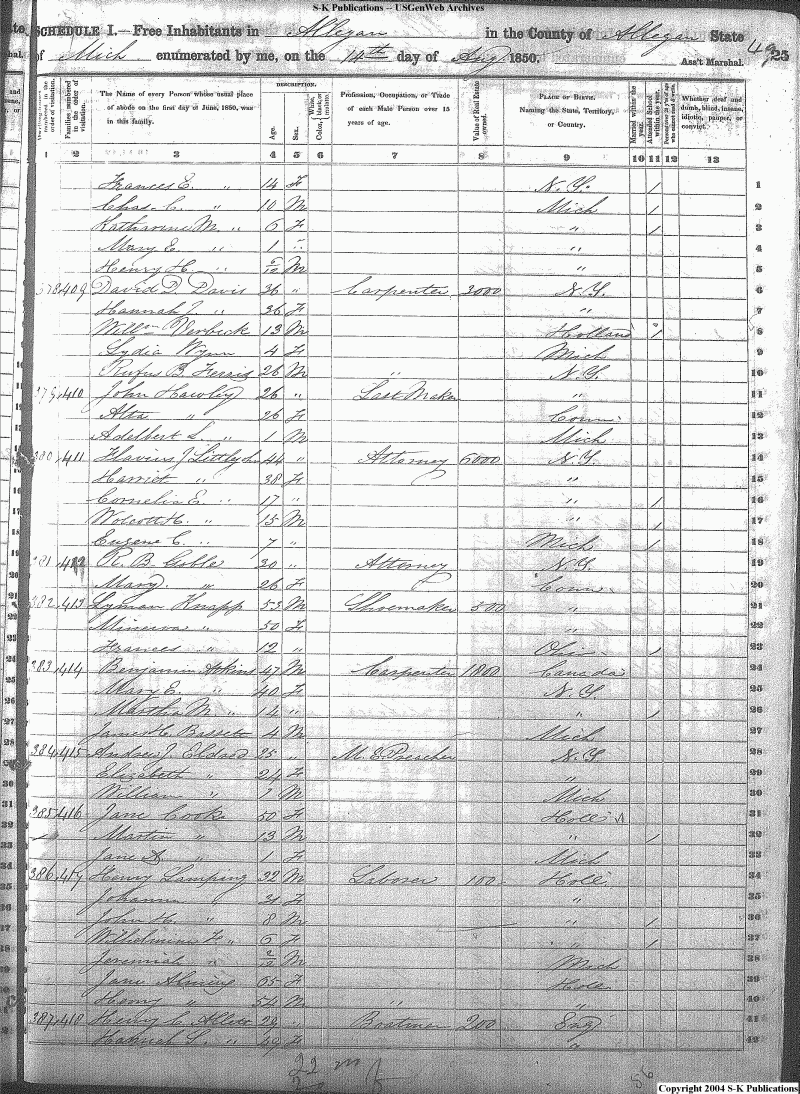 S-K Publications -- USGenWeb Archives
SCHEDULE I.—Free Inhabitants in Allegan in the County of Allegan State
of Mich enumerated by me, on the 14th day of Aug 1850. Ass't Marshal. 25
DESCRIPTION.
The Name of every Person whose usual place of abode on the first day of June, 1850, was in this family. Age. Sex. Profession, Occupation, or Trade of each Male Person over 15 years of age. Value of Real Estate owned. PLACE OF BIRTH. Naming the State, Territory, or Country. Married within the year. Attended School within the year. Whether deaf and dumb, blind, insane, idiotic, pauper, or convict.
1 2 3 4 5 6 7 8 9 10 11 12 13
Frances E. " 14 F N.Y. / 1
Chas. C. " 10 M Mich / 2
Katharine M. " 6 F " / 3
Mary E. " 1 " " 4
Henry H. " M " 5
409 David D. Davis 36 " Carpenter 3000 N.Y. 6
Hannah " 36 F " 7
Willm Verbeck 13 M Holland / 8
Lydia Wynn 4 F Mich 9
Rufus B. Ferris 26 M " N.Y. 10
379 410 John Hawley 26 " Last Maker " 11
Alta " 26 F Conn. 12
Adelbert L. " 1 M Mich 13
380 411 Flavius J. Littlejohn 44 " Attorney 6000 N.Y. 14
Harriet " 38 F " 15
Cornelia E. " 17 " " / 16
Wolcott H. " 15 M " / 17
Eugene C. " 7 " Mich / 18
381 412 R. B. Goble 30 " Attorney N.Y. 19
Mary " 26 F Conn. 20
382 413 Lyman Knapp 53 M Shoemaker 500 " 21
Minerva " 50 F " 22
Frances " 12 " Ohio / 23
383 414 Benjamin Atkins 47 M Carpenter 1800 Canada 24
Mary E. " 40 F N.Y. 25
Martha M. " 14 " " / 26
James C. Bassett 4 M Mich 27
384 415 Andrew J. Eldred 25 " M. E. Preacher N.Y. 28
Elizabeth " 24 F " 29
William " 1 M Mich 30
385 416 Jane Cook 50 F Holl. 31
Martin " 13 M " / 32
Jane A " 1 F Mich 33
386 417 Henry Lamping 32 M Laborer 100 Holl. 34
Johanna 31 F " 35
John H. " 8 M " / 36
Wilhelmina F. " 6 F " / 37
Jeremiah " 2/12 M Mich 38
Jane 65 F Holl. 39
Henry " 54 M " " 40
387 418 Henry C. 29 " Boatman 200 Eng 41
Hannah L. " 49 F " 42
22 m
56
Copyright 2004 S-K Publications